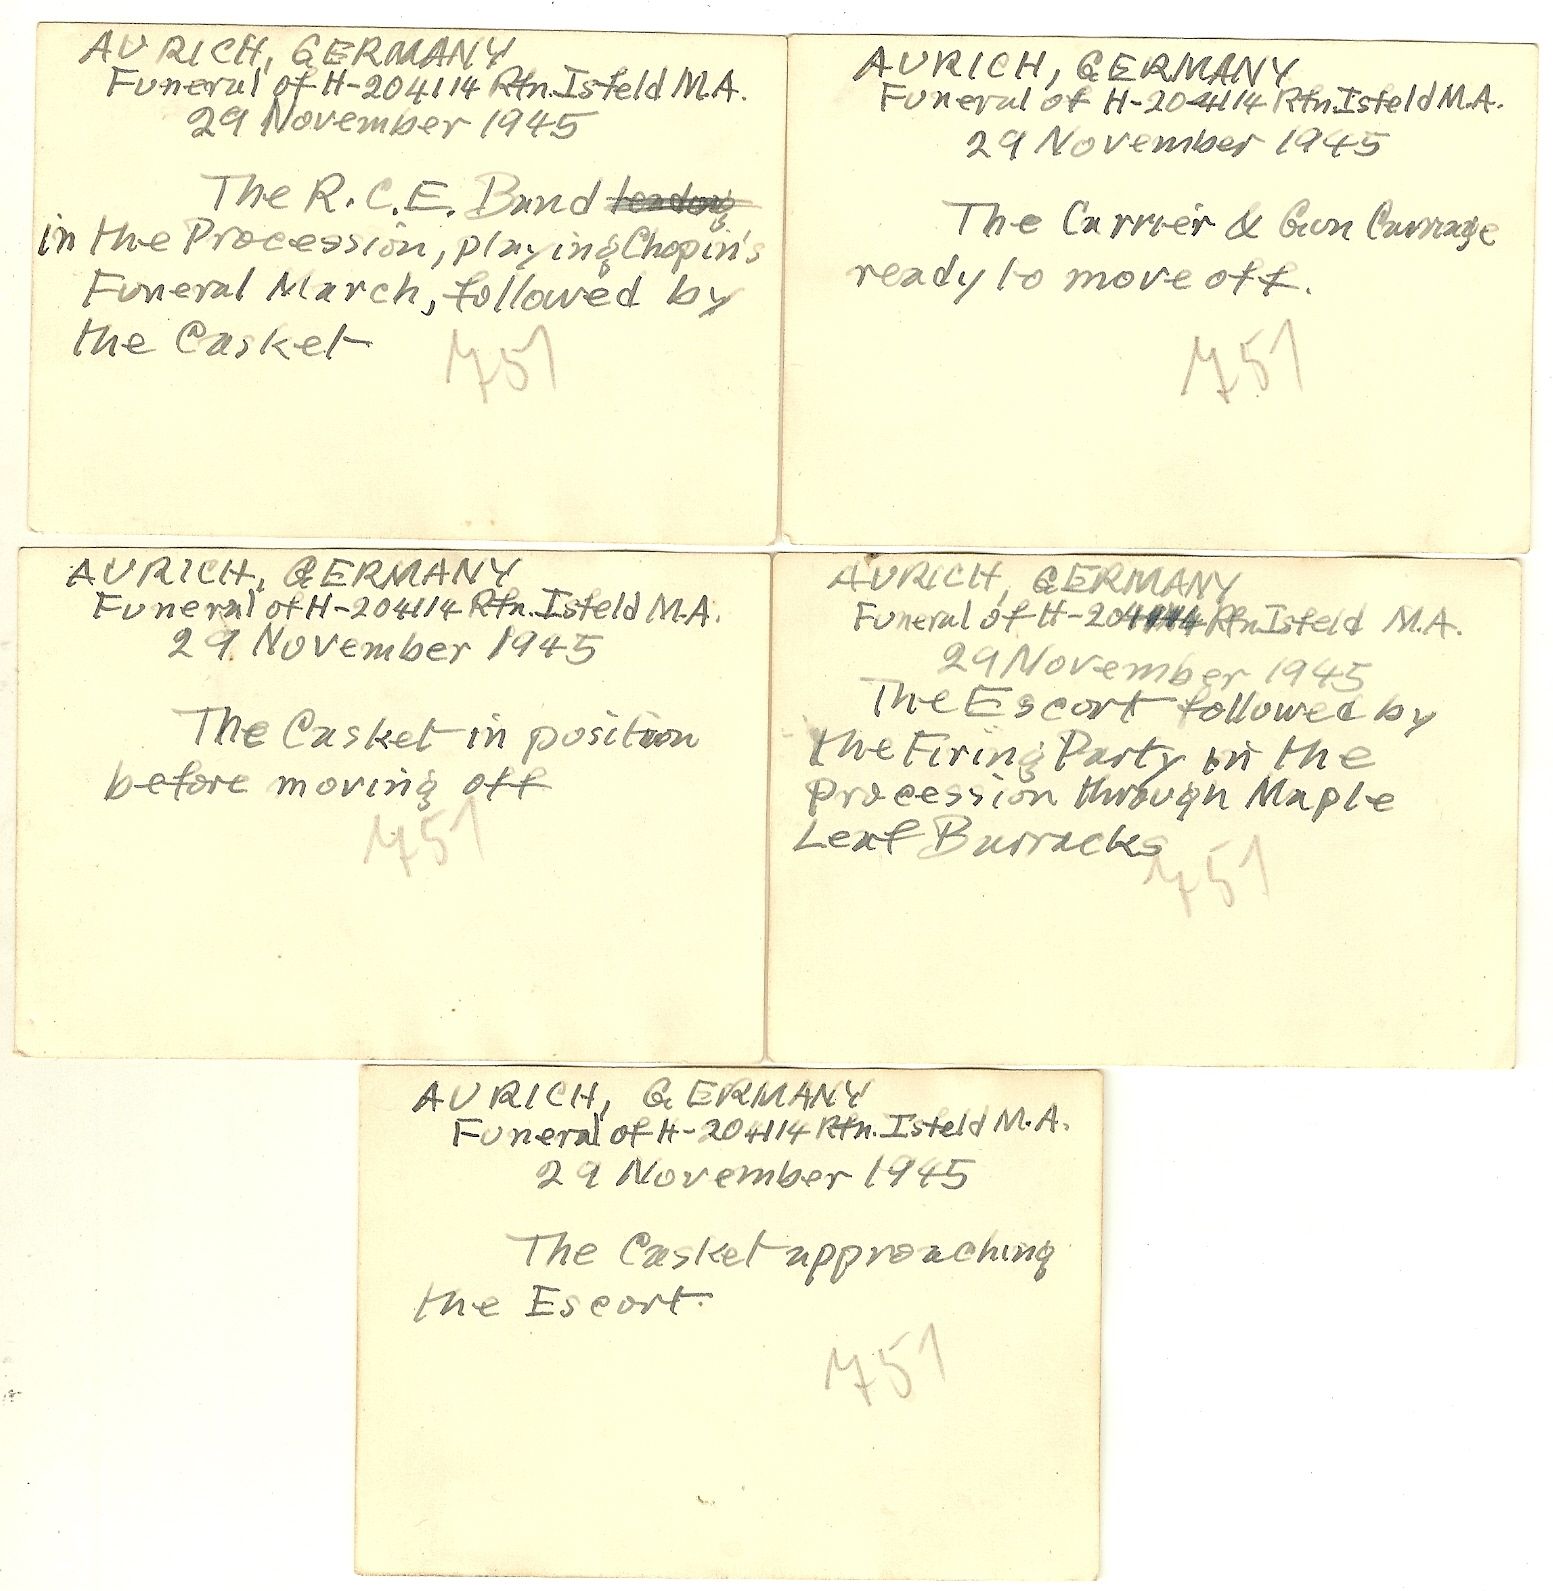 AURICH, GERMANY
Funeral of H-204114 Rfn. Isfeld M.A.
29 November 1945
The R.C.E. Band
in the Procession, playing Chopin's
Funeral March, followed by
the Casket
751
AURICH, GERMANY
Funeral of H-204114 Rfn. Isfeld M.A.
29 November 1945
The Carrier & Gun Carriage
ready to move off.
751
AURICH, GERMANY
Funeral of H-204114 Rfn. Isfeld M.A.
29 November 1945
The Casket in position
before moving off
751
AURICH, GERMANY
Funeral of H-204114 Rfn. Isfeld M.A.
29 November 1945
The Escort followed by
the Firing Party in the
Procession through Maple
Leaf Barracks
751
AURICH, GERMANY
Funeral of H-204114 Rfn. Isfeld M.A.
29 November 1945
The Casket approaching
the Escort.
751